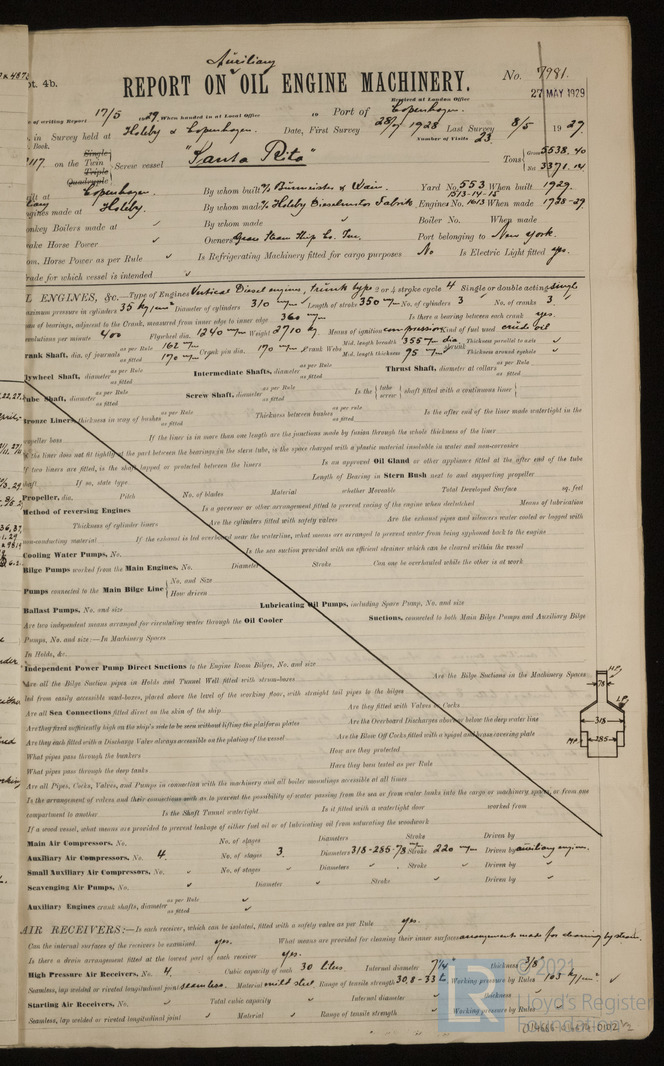 pt. 4b.
Auxiliary
REPORT ON OIL ENGINE MACHINERY.
No. 7981.
27 MAY 1929
Received at London Office
of writing Report 17/5 29 When handed in at Local Office 19 Port of Copenhagen.
in Survey held at Holeby & Copenhagen. Date, First Survey 28/9 1928 Last Survey 8/5 1929
Book. Number of Visits 23
on the Single Twin Triple Quadruple Screw vessel "Santa Rita" Tons Gross 5538.40 Net 3371.14
built at Copenhagen By whom built Burmeister & Wain Yard No. 553 When built 1929.
Engines made at Holeby. By whom made Holeby Dieselmotor Fabrik Engine No. 1513-14-15 1613 When made 1928-29.
Donkey Boilers made at ✓ By whom made ✓ Boiler No. When made
Brake Horse Power ✓ Owners Grace Steam Ship Co. Inc. Port belonging to New York.
Nom. Horse Power as per Rule ✓ Is Refrigerating Machinery fitted for cargo purposes No Is Electric Light fitted yes.
Trade for which vessel is intended ✓
OIL ENGINES, &c.—Type of Engines Vertical Diesel engines, trunk type 2 or 4 stroke cycle 4 Single or double acting single
Maximum pressure in cylinders 35 kg/cm² Diameter of cylinders 310 m/m Length of stroke 350 m/m No. of cylinders 3 No. of cranks 3
Span of bearings, adjacent to the Crank, measured from inner edge to inner edge 360 m/m Is there a bearing between each crank yes.
Revolutions per minute 400 Flywheel dia. 1240 m/m Weight 2710 kg Means of ignition compression Kind of fuel used crude oil
Crank Shaft, dia. of journals as per Rule 162 m/m as fitted 170 m/m Crank pin dia. 170 m/m Crank Webs Mid. length breadth 355 m/m dia. Mid. length thickness 95 m/m Thickness parallel to axis ✓ Thickness around eyehole ✓
Flywheel Shaft, diameter as per Rule as fitted Intermediate Shafts, diameter as per Rule as fitted Thrust Shaft, diameter at collars as per Rule as fitted
Tube Shaft, diameter as per Rule as fitted Screw Shaft, diameter as per Rule as fitted Is the tube screw shaft fitted with a continuous liner
Bronze Liners, thickness in way of bushes as per Rule as fitted Thickness between bushes as per rule as fitted Is the after end of the liner made watertight in the
propeller boss If the liner is in more than one length are the junctions made by fusion through the whole thickness of the liner
If the liner does not fit tightly at the part between the bearings in the stern tube, is the space charged with a plastic material insoluble in water and non-corrosive
If two liners are fitted, is the shaft lapped or protected between the liners Is an approved Oil Gland or other appliance fitted at the after end of the tube
shaft If so, state type Length of Bearing in Stern Bush next to and supporting propeller
Propeller, dia. Pitch No. of blades Material whether Moveable Total Developed Surface sq. feet
Method of reversing Engines Is a governor or other arrangement fitted to prevent racing of the engine when declutched Means of lubrication
Thickness of cylinder liners Are the cylinders fitted with safety valves Are the exhaust pipes and silencers water cooled or lagged with
non-conducting material If the exhaust is led overboard near the waterline, what means are arranged to prevent water from being syphoned back to the engine
Cooling Water Pumps, No. Is the sea suction provided with an efficient strainer which can be cleared within the vessel
Bilge Pumps worked from the Main Engines, No. Diameter Stroke Can one be overhauled while the other is at work
Pumps connected to the Main Bilge Line No. and Size How driven
Ballast Pumps, No. and size Lubricating Oil Pumps, including Spare Pump, No. and size
Are two independent means arranged for circulating water through the Oil Cooler Suctions, connected to both Main Bilge Pumps and Auxiliary Bilge
Pumps, No. and size:—In Machinery Spaces
In Holds, &c.
Independent Power Pump Direct Suctions to the Engine Room Bilges, No. and size
Are all the Bilge Suction pipes in Holds and Tunnel Well fitted with strum-boxes Are the Bilge Suctions in the Machinery Spaces
led from easily accessible mud-boxes, placed above the level of the working floor, with straight tail pipes to the bilges
Are all Sea Connections fitted direct on the skin of the ship Are they fitted with Valves or Cocks
Are they fixed sufficiently high on the ship's side to be seen without lifting the platform plates Are the Overboard Discharges above or below the deep water line
Are they each fitted with a Discharge Valve always accessible on the plating of the vessel Are the Blow Off Cocks fitted with a spigot and brass covering plate
What pipes pass through the bunkers How are they protected
What pipes pass through the deep tanks Have they been tested as per Rule
Are all Pipes, Cocks, Valves, and Pumps in connection with the machinery and all boiler mountings accessible at all times
Is the arrangement of valves and their connections such as to prevent the possibility of water passing from the sea or from water tanks into the cargo or machinery spaces, or from one
compartment to another Is the Shaft Tunnel watertight Is it fitted with a watertight door worked from
If a wood vessel, what means are provided to prevent leakage of either fuel oil or of lubricating oil from saturating the woodwork
Main Air Compressors, No. No. of stages Diameters Stroke Driven by
Auxiliary Air Compressors, No. 4. No. of stages 3. Diameters 318-285-78 m/m Stroke 220 m/m Driven by auxiliary engine.
Small Auxiliary Air Compressors, No. ✓ No. of stages ✓ Diameters ✓ Stroke ✓ Driven by ✓
Scavenging Air Pumps, No. ✓ Diameter ✓ Stroke ✓ Driven by ✓
Auxiliary Engines crank shafts, diameter as per Rule ✓ as fitted ✓
AIR RECEIVERS:—Is each receiver, which can be isolated, fitted with a safety valve as per Rule yes.
Can the internal surfaces of the receivers be examined yes. What means are provided for cleaning their inner surfaces arrangements made for cleaning by steam.
Is there a drain arrangement fitted at the lowest part of each receiver yes.
High Pressure Air Receivers, No. 4. Cubic capacity of each 30 liters. Internal diameter 7¼" thickness 3/8"
Seamless, lap welded or riveted longitudinal joint seamless. Material mild steel Range of tensile strength 30,8-33 Working pressure by Rules 103 kg/cm² ✓
Starting Air Receivers, No. ✓ Total cubic capacity ✓ Internal diameter ✓ thickness ✓
Seamless, lap welded or riveted longitudinal joint ✓ Material ✓ Range of tensile strength ✓ Working pressure by Rules ✓
H.P.
78
L.P.
318
M.P.
285
LR
© 2021
Lloyd's Register
Foundation